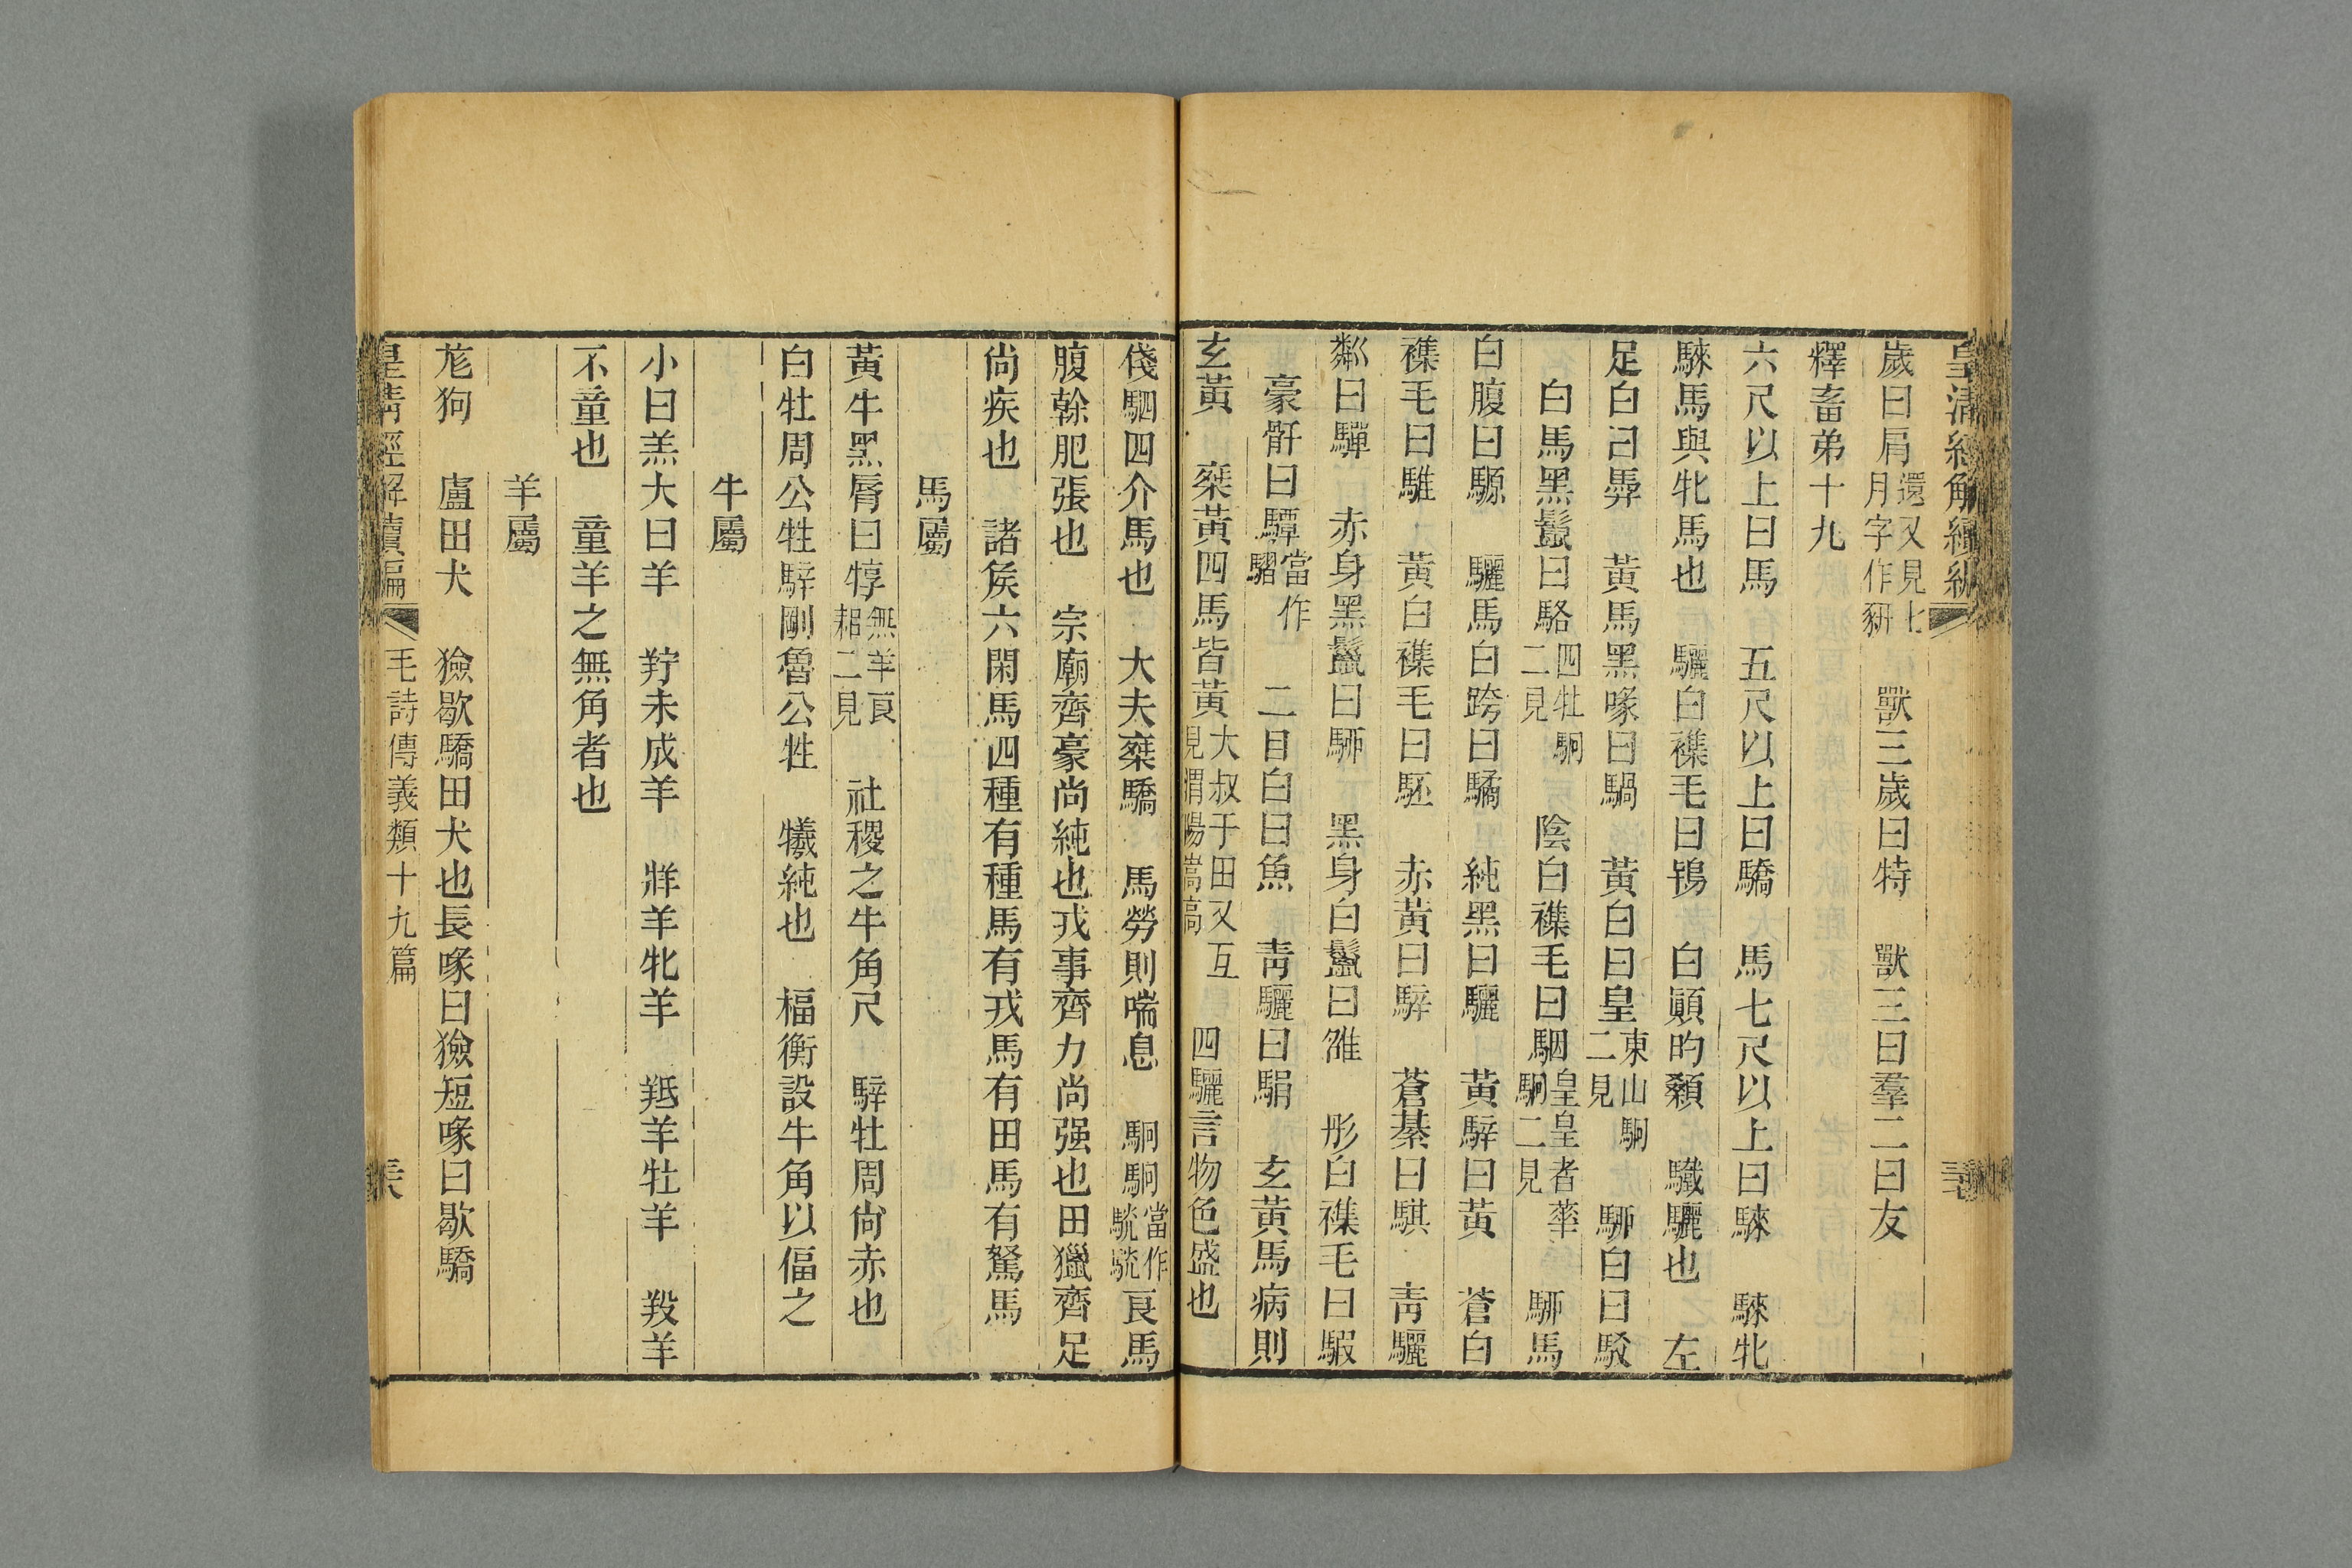 皇清經解續編
歲曰肩還又見七月字作豜　獸三歲曰特　獸三曰羣二曰友
釋畜弟十九
六尺以上曰馬　五尺以上曰驕　馬七尺以上曰騋　騋牝
騋馬與牝馬也　驪白襍毛曰鴇　白顚的顙　驖驪也　左
足白曰馵　黃馬黑喙曰騧　黃白曰皇東山駉二見　駵白曰駁
白馬黑鬣曰駱四牡駉二見　陰白襍毛曰駰皇皇者華駉二見　駵馬
白腹曰騵　驪馬白跨曰驈　純黑曰驪　黃騂曰黃　蒼白
襍毛曰騅　黃白襍毛曰駓　赤黃曰騂　蒼綦曰騏　靑驪
粼曰驒　赤身黑鬣曰駵　黑身白鬣曰雒　彤白襍毛曰騢
豪骭曰驔當作騽　二目白曰魚　靑驪曰駽　玄黃馬病則
玄黃　椉黃四馬皆黃大叔于田又互見渭陽崧高　四驪言物色盛也
俴駟四介馬也　大夫椉驕　馬勞則喘息　駉駉當作驍驍良馬
腹榦肥張也　宗廟齊豪尚純也戎事齊力尚强也田獵齊足
尚疾也　諸矦六閑馬四種有種馬有戎馬有田馬有駑馬
馬屬
黃牛黑脣曰犉無羊良耜二見　社稷之牛角尺　騂牡周尙赤也
白牡周公牲騂剛魯公牲　犧純也　楅衡設牛角以偪之
牛屬
小曰羔大曰羊　羜未成羊　牂羊牝羊　羝羊牡羊　羖羊
不童也　童羊之無角者也
羊屬
尨狗　盧田犬　獫歇驕田犬也長喙曰獫短喙曰歇驕
皇淸經解續編　毛詩傳義類十九篇